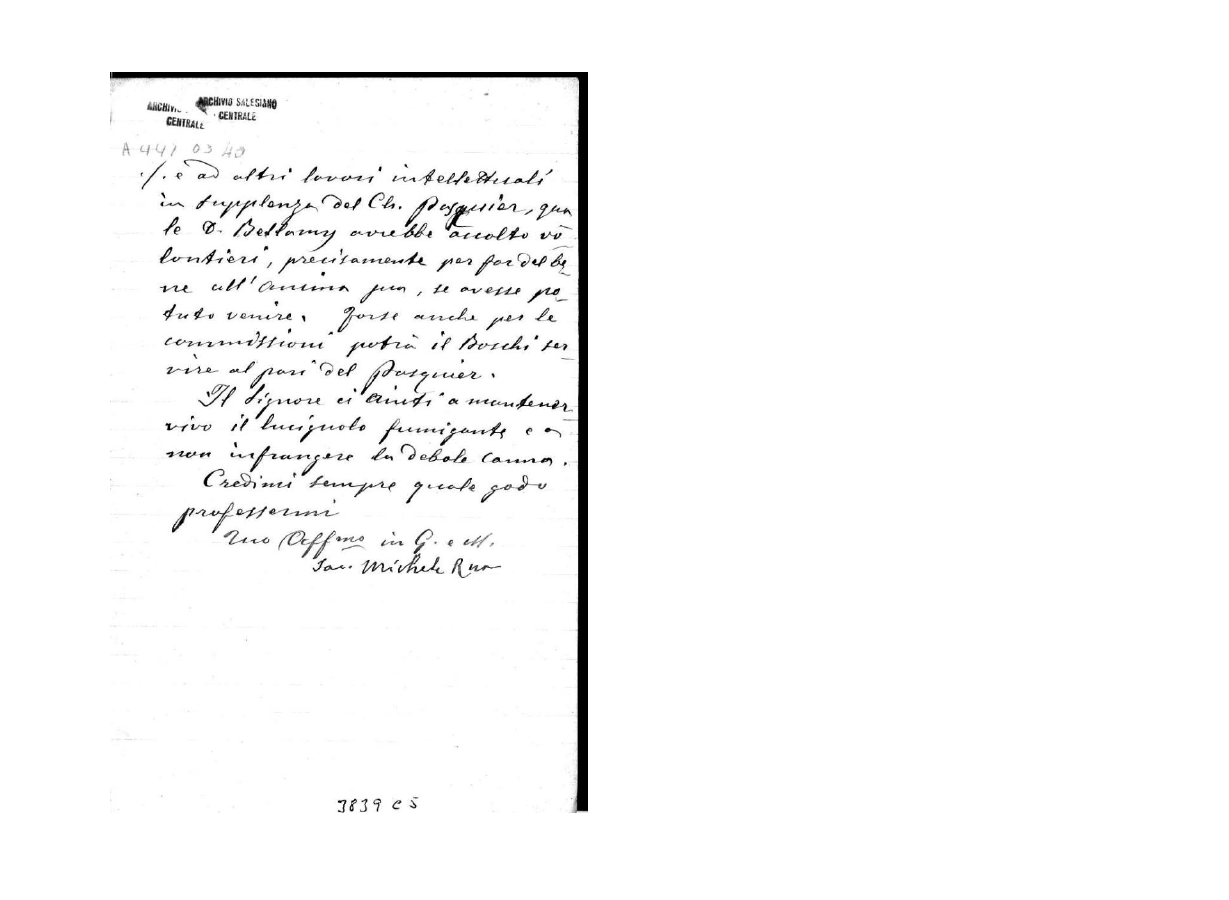 ARCHIVI.. ARCHIVIO SALESIANO
CENTRALE CENTRALE
A 441 03 40
./. e ad altri lavori intellettuali
in supplenza del Ch. Pasquier, qua
le D. Bellamy avrebbe accolto vo
lontieri, precisamente per far del be
ne all'anima sua, se avesse po
tuto venire. Forse anche per le
commissioni potrà il Boschi ser
vire al pari del Pasquier.
Il Signore ci aiuti a mantener
vivo il lucignolo fumigante e a
non infrangere la debole canna.
Credimi sempre quale godo
professarmi
Tuo Aff.mo in G. e M.
Sac. Michele Rua
3839 C 5